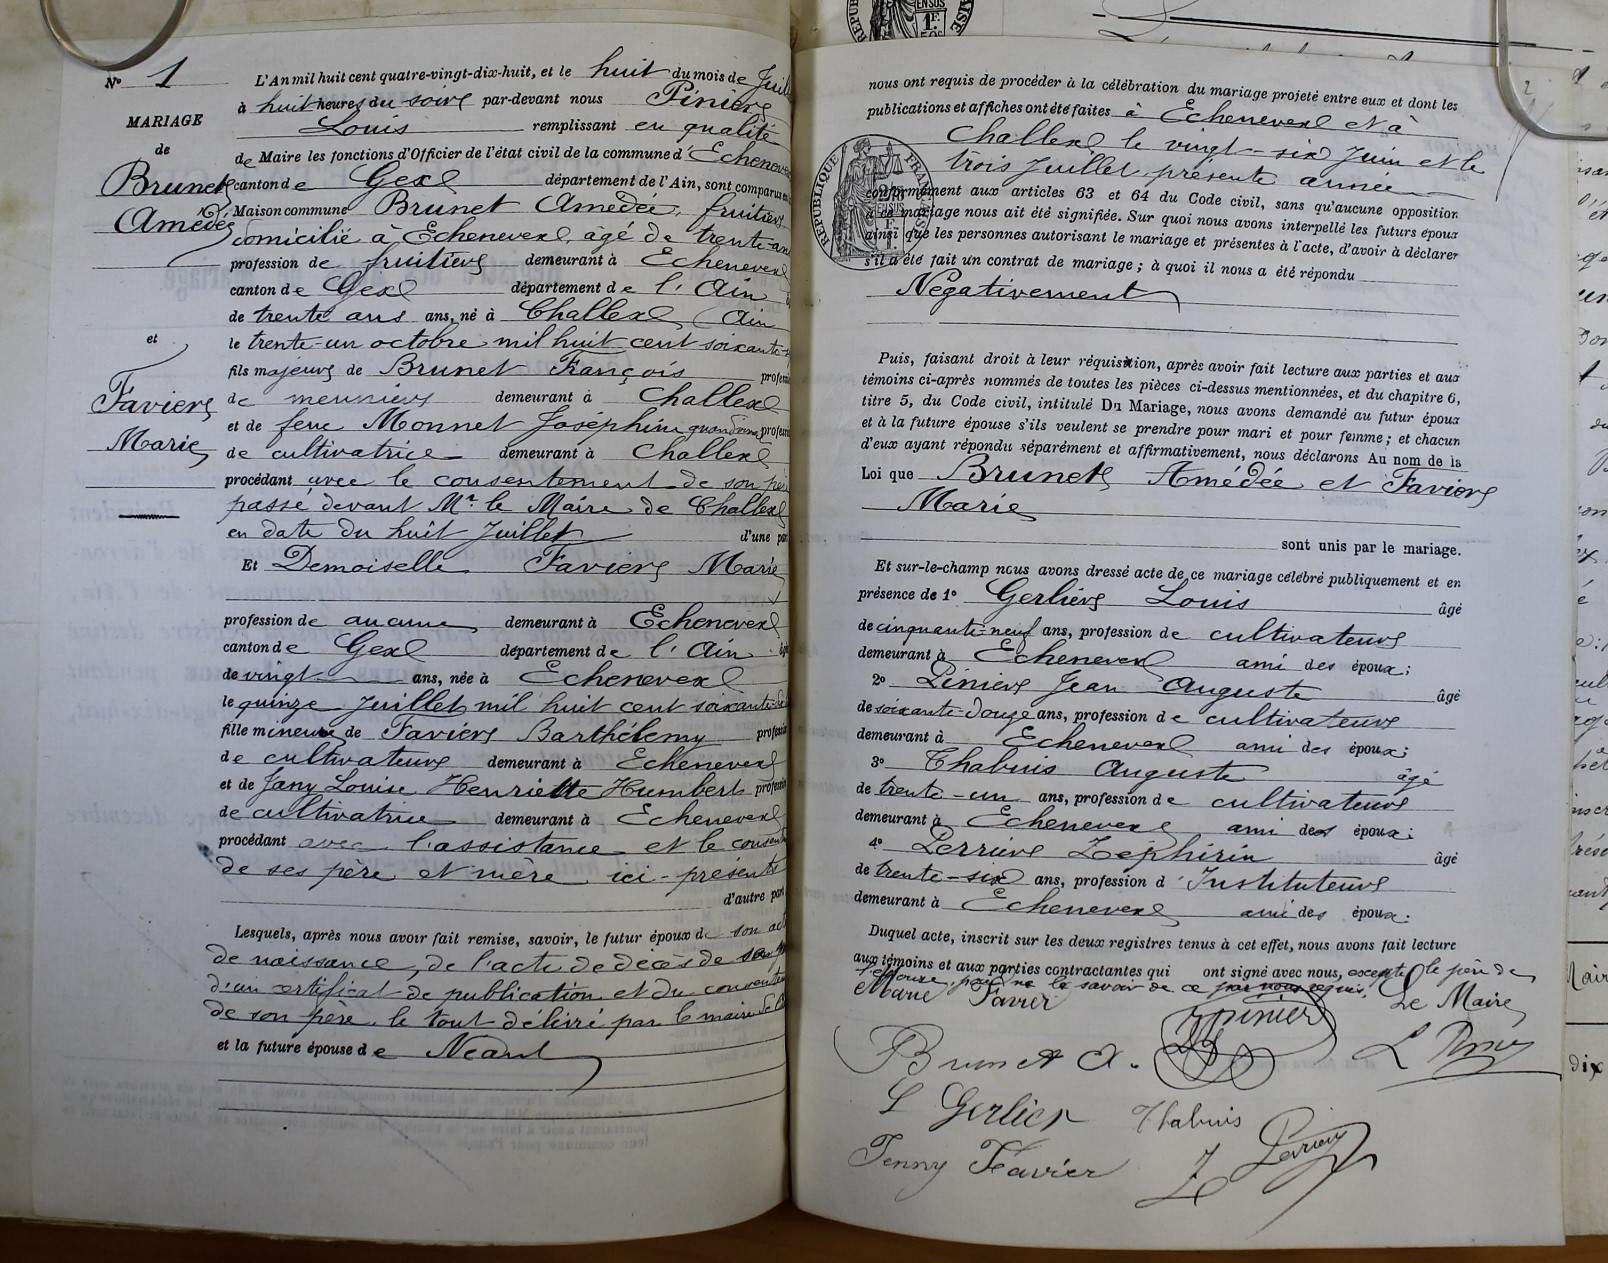 No 1
MARIAGE
de
Brunet
Amédée
et
Favier
Marie
L'An mil huit cent quatre-vingt-dix-huit, et le huit du mois de Juill
à huit heures du soir par-devant nous Pinier
Louis remplissant en qualité
de Maire les fonctions d'Officier de l'état civil de la commune d'Echenevex
canton de Gex département de l'Ain, sont comparus en
Maison commune Brunet Amédée, fruitier
domicilié à Echenevex, âgé de trente ans
profession de fruitier demeurant à Echenevex
canton de Gex département de l'Ain
de trente ans ans, né à Challex (Ain
le trente-un octobre mil huit cent soixante-
fils majeur de Brunet François profession
de meunier demeurant à Challex
et de feue Monnet Joséphine quand vivait profession
de cultivatrice demeurant à Challex
procédant avec le consentement de son père
passé devant Mr le Maire de Challex
en date du huit Juillet d'une part
Et Demoiselle Favier Marie
profession de aucune demeurant à Echenevex
canton de Gex département de l'Ain âgé
de vingt ans, née à Echenevex
le quinze Juillet mil huit cent soixante-
fille mineure de Favier Barthélemy profession
de cultivateur demeurant à Echenevex
et de Jany Louise Henriette Humbert profession
de cultivatrice demeurant à Echenevex
procédant avec l'assistance et le consent
de ses père et mère ici-présents
d'autre part
Lesquels, après nous avoir fait remise, savoir, le futur époux de son acte
de naissance, de l'acte de décès de sa
d'un certificat de publication et du consentem
de son père, le tout délivré par le maire de
et la future épouse de Néant
nous ont requis de procéder à la célébration du mariage projeté entre eux et dont les
publications et affiches ont été faites à Echenevex et à
Challex le vingt-six Juin et le
trois Juillet présente année
conformément aux articles 63 et 64 du Code civil, sans qu'aucune opposition
à ce mariage nous ait été signifiée. Sur quoi nous avons interpellé les futurs époux
ainsi que les personnes autorisant le mariage et présentes à l'acte, d'avoir à déclarer
s'il a été fait un contrat de mariage ; à quoi il nous a été répondu
Négativement
Puis, faisant droit à leur réquisition, après avoir fait lecture aux parties et aux
témoins ci-après nommés de toutes les pièces ci-dessus mentionnées, et du chapitre 6,
titre 5, du Code civil, intitulé Du Mariage, nous avons demandé au futur époux
et à la future épouse s'ils veulent se prendre pour mari et pour femme ; et chacun
d'eux ayant répondu séparément et affirmativement, nous déclarons Au nom de la
Loi que Brunet Amédée et Favier
Marie
sont unis par le mariage.
Et sur-le-champ nous avons dressé acte de ce mariage célébré publiquement et en
présence de 1o Gerlier Louis âgé
de cinquante-neuf ans, profession de cultivateur
demeurant à Echenevex ami des époux ;
2o Pinier Jean Auguste âgé
de soixante-douze ans, profession de cultivateur
demeurant à Echenevex ami des époux ;
3o Thabuis Auguste âgé
de trente-un ans, profession de cultivateur
demeurant à Echenevex ami des époux ;
4o Perruve Zéphirin âgé
de trente-six ans, profession d'Instituteur
demeurant à Echenevex ami des époux.
Duquel acte, inscrit sur les deux registres tenus à cet effet, nous avons fait lecture
aux témoins et aux parties contractantes qui ont signé avec nous, excepté le père de
l'épouse pour ne le savoir de ce par nous requis.
Marie Favier Pinier Le Maire
Brunet A. L Pinier
L Gerlier Thabuis
Jenny Favier Z
RÉPUBLIQUE FRANÇAISE